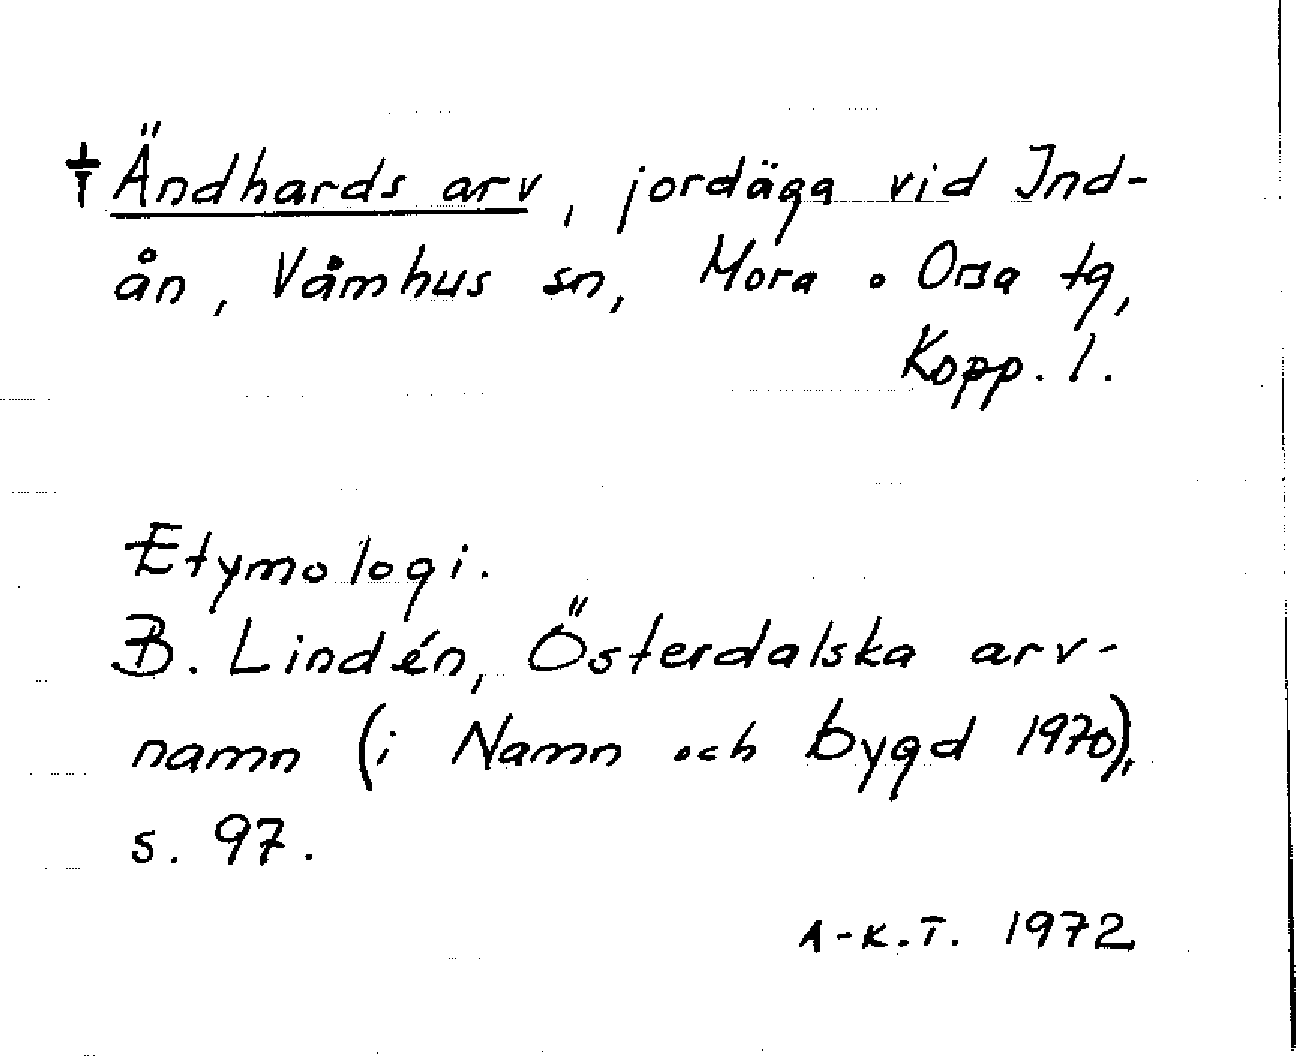 ‡ Ändhards arv, jordäga vid Ind-
ån, Våmhus sn, Mora o Orsa tg,
Kopp. l.
Etymologi.
B. Lindén, Österdalska arv-
namn (i Namn och bygd 1970),
s. 97.
A-K.T. 1972